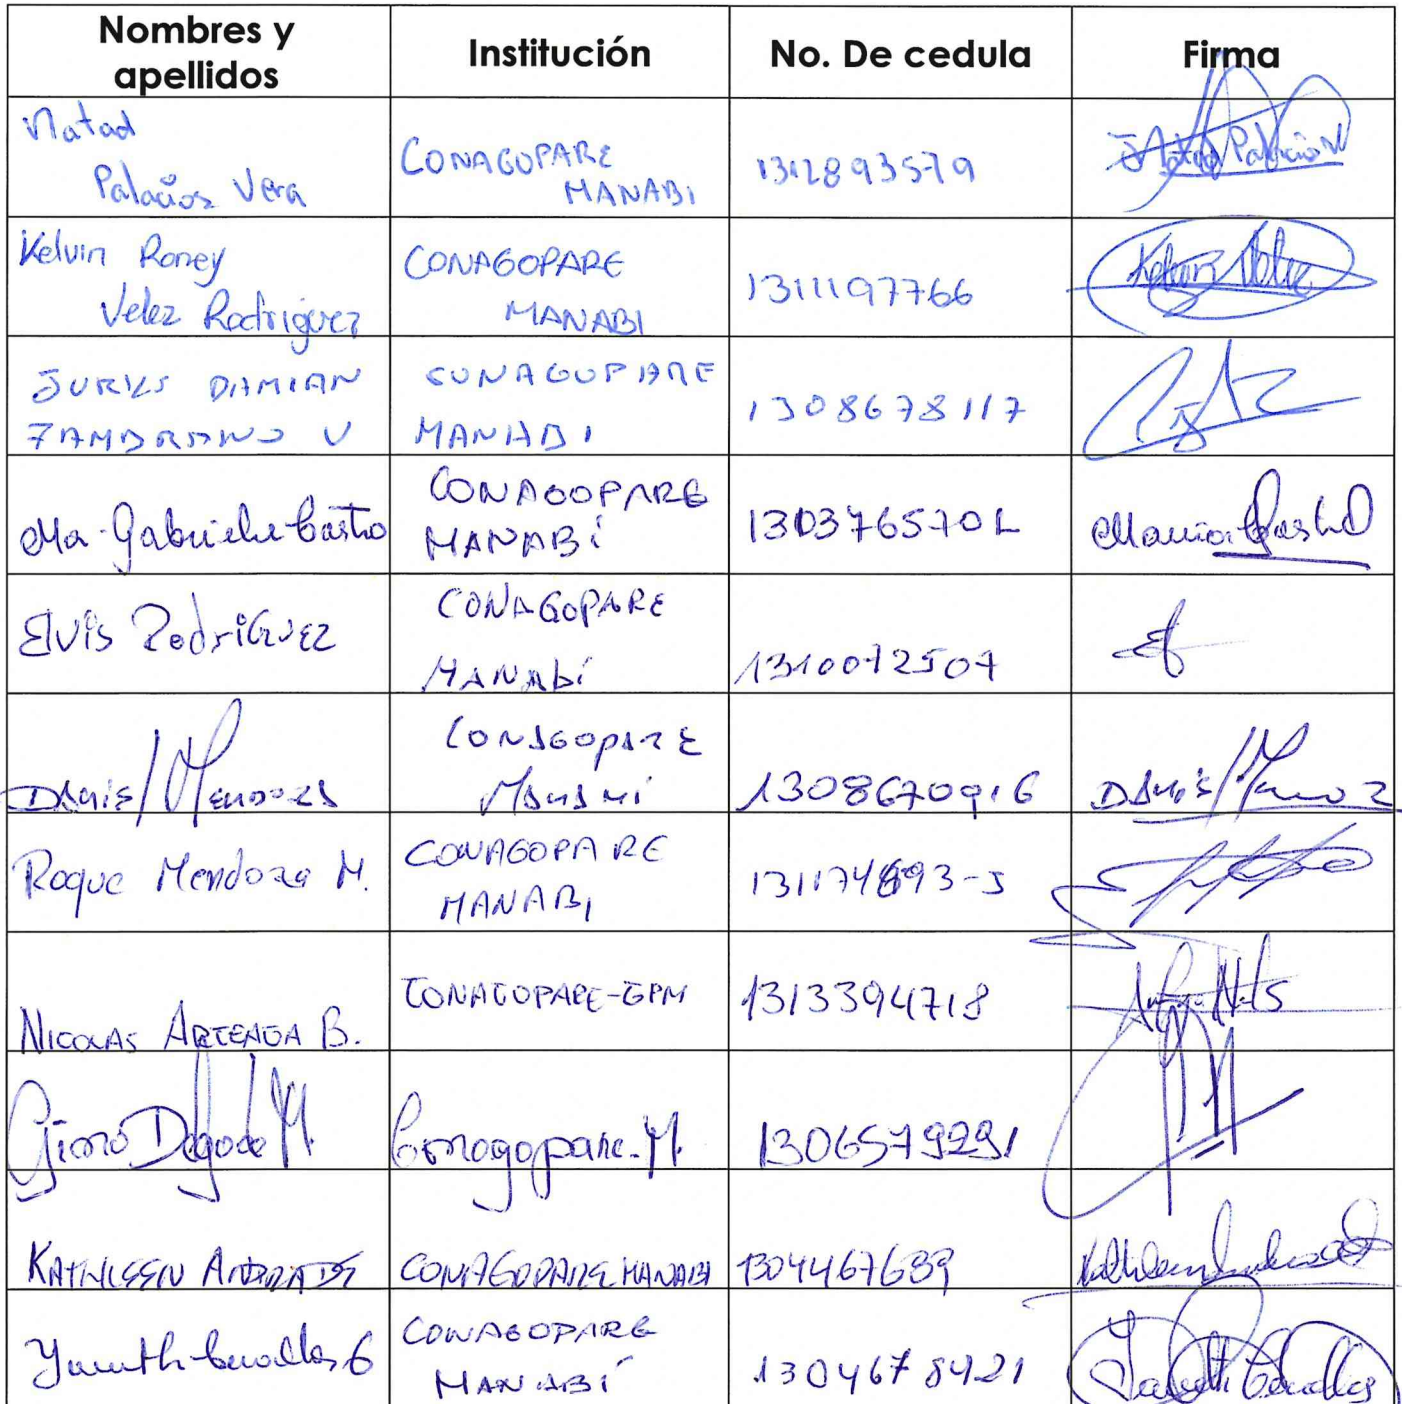 Nombres y
apellidos
Institución
No. De cedula
Firma
Natad
Palacios Vera
CONAGOPARE
MANABI
1312893579
Kelvin Roney
Velez Rodriguez
CONAGOPARE
MANABI
1311197766
Kelvin Velez
JURVS DAMIAN
ZAMBRANO V
CONAGOPARE
MANABI
1308678117
Ma. Gabriela Castro
CONAGOPARE
MANABí
130376570L
Maria Castro
Elvis RodriGuez
CONAGOPARE
MANAbí
1310072507
Mendoza
CONAGOPARE
1308670916
Roque Mendoza M.
CONAGOPARE
MANABI
NICOLAS ARTEAGA B.
CONAGOPARE-GPM
1313394718
Conagopare. M.
1306579291
KATHLEEN ANDRADE
CONAGOPARE MANABI
1304467639
CONAGOPARE
MANABí
1304678421